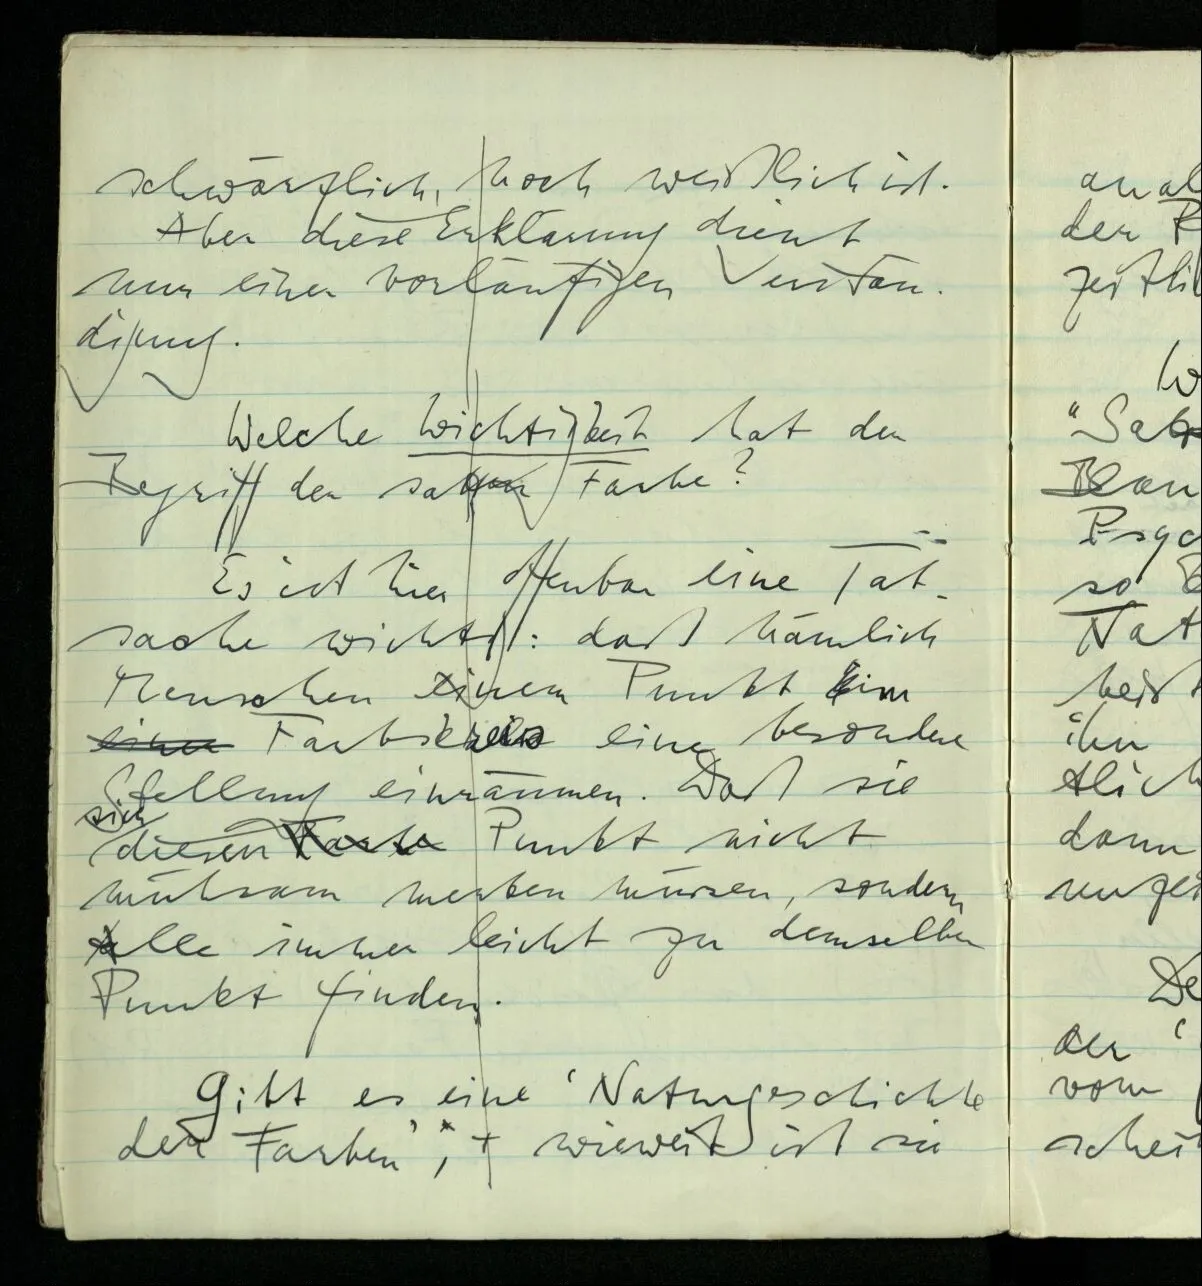 schwärzlich, noch weißlich ist.
Aber diese Erklärung dient
nur einer vorläufigen Verstän-
digung.
Welche Wichtigkeit hat der
Begriff der satten Farbe?
Es ist hier offenbar eine Tat-
sache wichtig: daß nämlich
Menschen einem Punkt im
einen Farbkreis eine besondere
Stellung einräumen. Daß sie
sich
diesen Farbe Punkt nicht
mühsam merken müssen, sondern
alle immer leicht zu demselben
Punkt finden.
Gibt es eine 'Naturgeschichte
der Farben', + wieweit ist sie
anal
der
zeitli
W
"Sa
Psyc
so
Nat
heiß
ihn
tlich
dann
De
der '
vom
schei